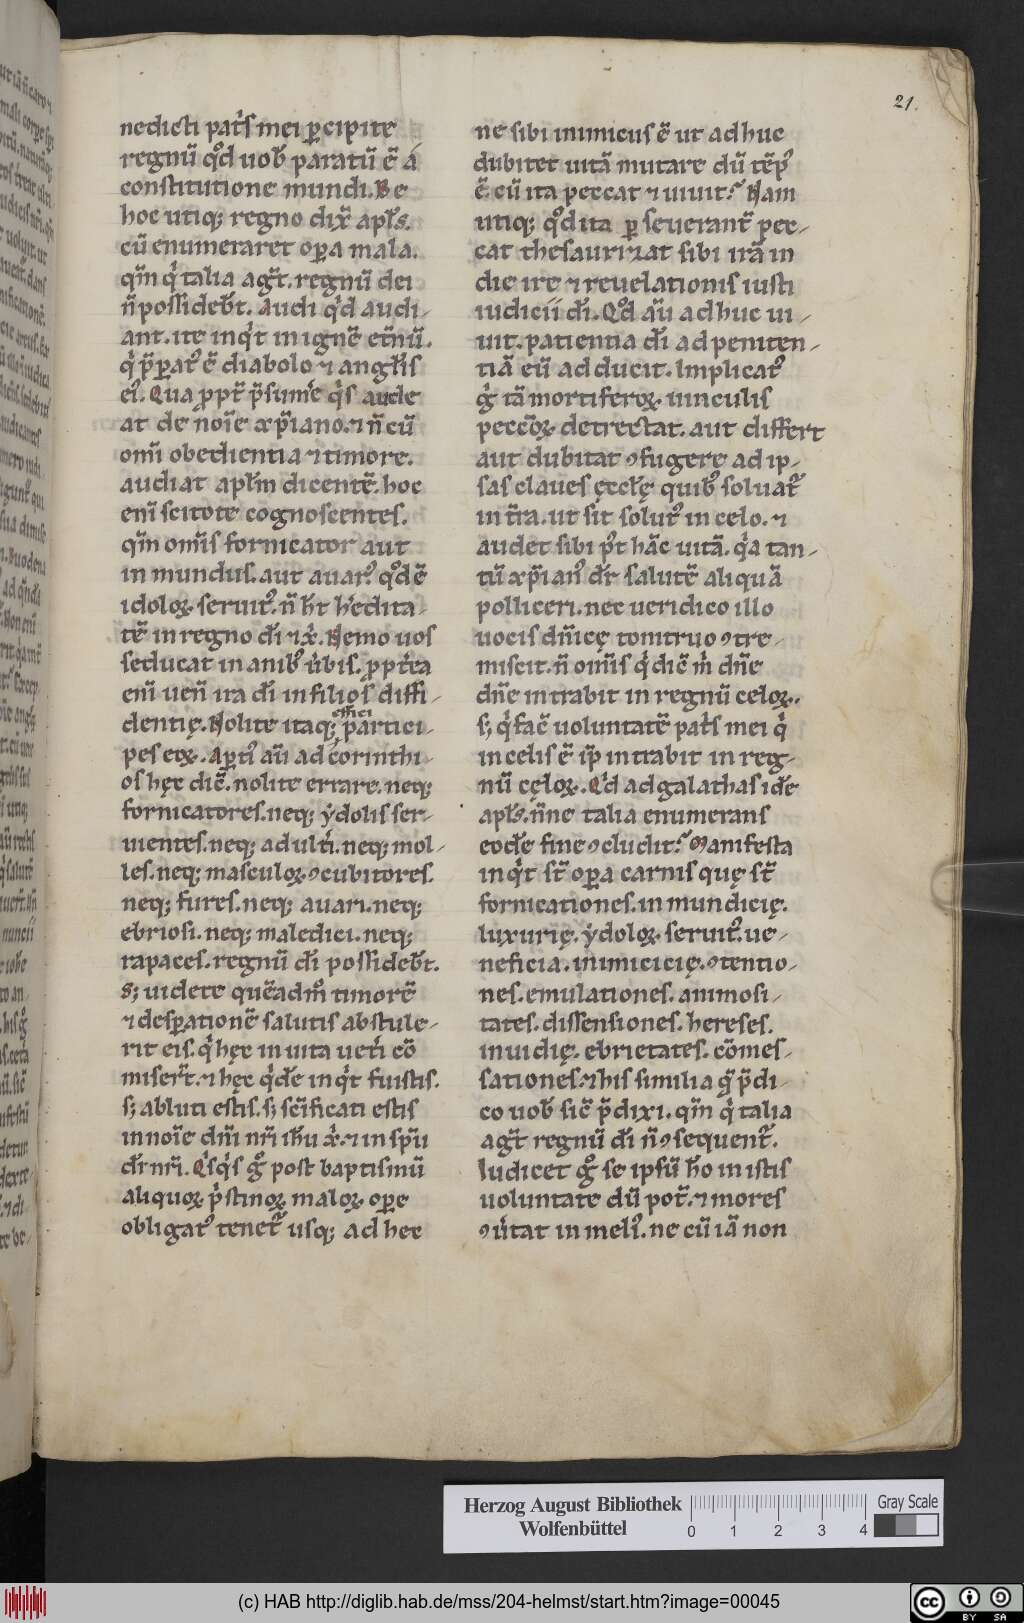 21.
nedicti pat̃s mei ꝑcipite
regnũ qͦd uob̃ paratũ ẽ á
constitutione mundi. De
hoc utiq; regno dix̃ apłs.
cũ enumeraret oꝑa mala.
qm̃ qⁱ talia agt̃. regnũ dei
ñ possideb̃t. Audi qⁱd audi-
ant. ite inqⁱt in ignẽ et̃nũ.
qⁱ p̃ꝑatꝰ ẽ diabolo ⁊ angłis
eiꝰ. Qua ꝓpt̃ p̃sum̃e qⁱs aude
at de noĩe xp̃iano. ⁊ ñ cũ
omĩ obedientia ⁊ timore.
audiat apłm dicentẽ. hoc
enĩ scitote cognoscentes.
qm̃ omĩs fornicator aut
inmundus. aut auarꝰ qͦd ẽ
idoloꝝ seruitꝰ. ñ ht̃ hedita-
tẽ in regno dĩ ⁊ xⁱ. Nemo uos
seducat in anibꝰ ũbis. ꝓpt̃ea
enĩ uen̄ ira dĩ in filios diffi-
dentię. Nolite itaq; effici partici-
pes eoꝝ. Aꝑtiꝰ aũ ad corinthi-
os hęc diẽ. nolite errare. neq;
fornicatores. neq; ẏdolis ser-
uientes. neq; adult̃i. neq; mol-
les. neq; masculoꝝ ꝯcubitores.
neq; fures. neq; auari. neq;
ebriosi. neq; maledici. neq;
rapaces. regnũ dĩ possideb̃t.
S; uidete quẽadmͦ timorẽ
⁊ desꝑationẽ salutis abstule-
rit eis. qⁱ hęc in uita uet̃i cõ
miser̃t. ⁊ hęc qⁱdẽ inqⁱt fuistis.
s; abluti estis. s; scĩficati estis
in noĩe dnĩ nr̃i ihũ xⁱ. ⁊ in spũ
dĩ nr̃i. Qⁱsqⁱs gͦ post baptismũ
aliquoꝝ pⁱstinoꝝ maloꝝ ope
obligatꝰ tenet̃ usq; ad hec
ne sibi inimicus ẽ ut adhuc
dubitet uitã mutare dũ tẽpꝰ
ẽ. cũ ita peccat ⁊ uiuit? Nam
utiq; qͦd ita ꝑseuerant̃ pec-
cat thesaurizat sibi irã in
die ire ⁊ reuelationis iusti
iudicii dĩ. Qͦd aũ adhuc ui-
uit. patientia dĩ ad peniten-
tiã eũ adducit. Implicatꝰ
gⁱ tã mortiferoꝝ uinculis
peccõꝝ detrectat. aut differt
aut dubitat ꝯfugere ad ip-
sas claues ęcclę quibꝰ soluat̃
in t̃ra. ut sit solutꝰ in celo. ⁊
audet sibi pꝰt hãc uitã. qⁱa tan-
tũ xp̃ianꝰ dr̃ salutẽ aliquã
polliceri. nec ueridico illo
uocis dnĩcę tonitruo ꝯtre-
miscit. ñ omĩs qⁱ diẽ mⁱ dñe
dñe intrabit in regnũ celoꝝ.
s; qⁱ facẽ uoluntatẽ pat̃s mei qⁱ
in celis ẽ ip̃ intrabit in reg-
nũ cęloꝝ. Qⁱd ad galathas idẽ
apłs. ñne talia enumerans
eodẽ fine ꝯcludit? Manifesta
inqⁱt st̃ oꝑa carnis quę st̃
fornicationes. inmundicię.
luxurię. ẏdoloꝝ seruitꝰ. ue-
neficia. inimicicię. ꝯtentio-
nes. emulationes. animosi-
tates. dissensiones. hereses.
inuidię. ebrietates. cõmes-
sationes. ⁊ his similia q̃ p̃di-
co uob̃ sic̃ p̃dixi. qm̃ qⁱ talia
agt̃ regnũ dĩ ñ ꝯsequent̃.
Iudicet gͦ se ipsũ hõ in istis
uoluntate dũ pot̃. ⁊ mores
ꝯũtat in meliꝰ. ne cũ iã non
Herzog August Bibliothek
Wolfenbüttel
0 1 2 3 4
Gray Scale
(c) HAB http://diglib.hab.de/mss/204-helmst/start.htm?image=00045
cc BY SA